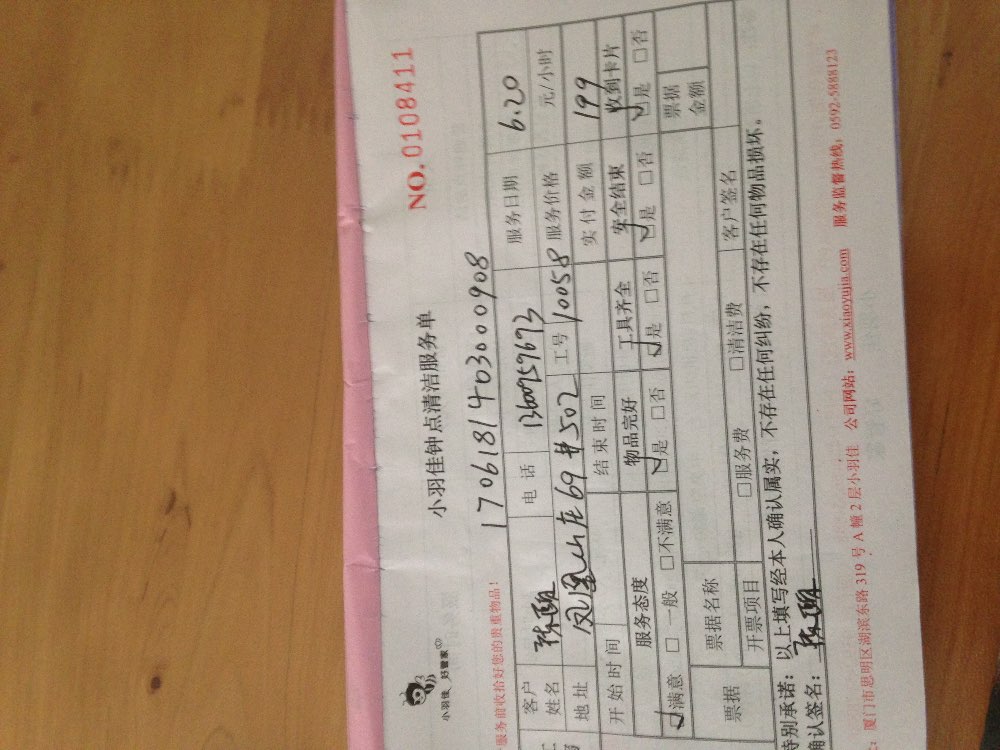 小羽佳 好管家
小羽佳钟点清洁服务单
NO. 0108411
1706181403000908
服务前收拾好您的贵重物品!
客户姓名 电话 13600959693 服务日期 6.20
地址 凤凰山庄69#502 工号 10058 服务价格 元/小时
开始时间 结束时间 实付金额 199
服务态度 物品完好 工具齐全 安全结束 收到卡片
☑满意 □一般 □不满意 ☑是 □否 ☑是 □否 ☑是 □否 ☑是 □否
票据 票据名称 票据金额
开票项目 □服务费 □清洁费 客户签名
特别承诺:以上填写经本人确认属实,不存在任何纠纷,不存在任何物品损坏。
确认签名:
:厦门市思明区湖滨东路319号A幢2层小羽佳 公司网站:www.xiaoyujia.com 服务监督热线:0592-5888123